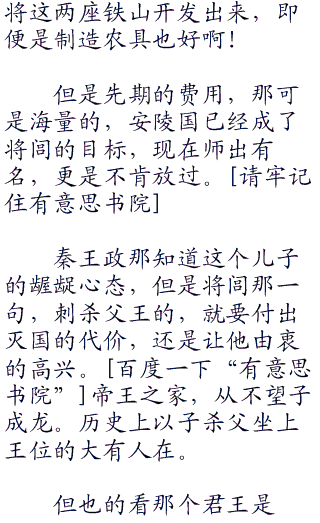 将这两座铁山开发出来，即
便是制造农具也好啊！
但是先期的费用，那可
是海量的，安陵国已经成了
将闾的目标，现在师出有
名，更是不肯放过。[请牢记
住有意思书院]
秦王政那知道这个儿子
的龌龊心态，但是将闾那一
句，刺杀父王的，就要付出
灭国的代价，还是让他由衷
的高兴。[百度一下“有意思
书院”]帝王之家，从不望子
成龙。历史上以子杀父坐上
王位的大有人在。
但也的看那个君王是